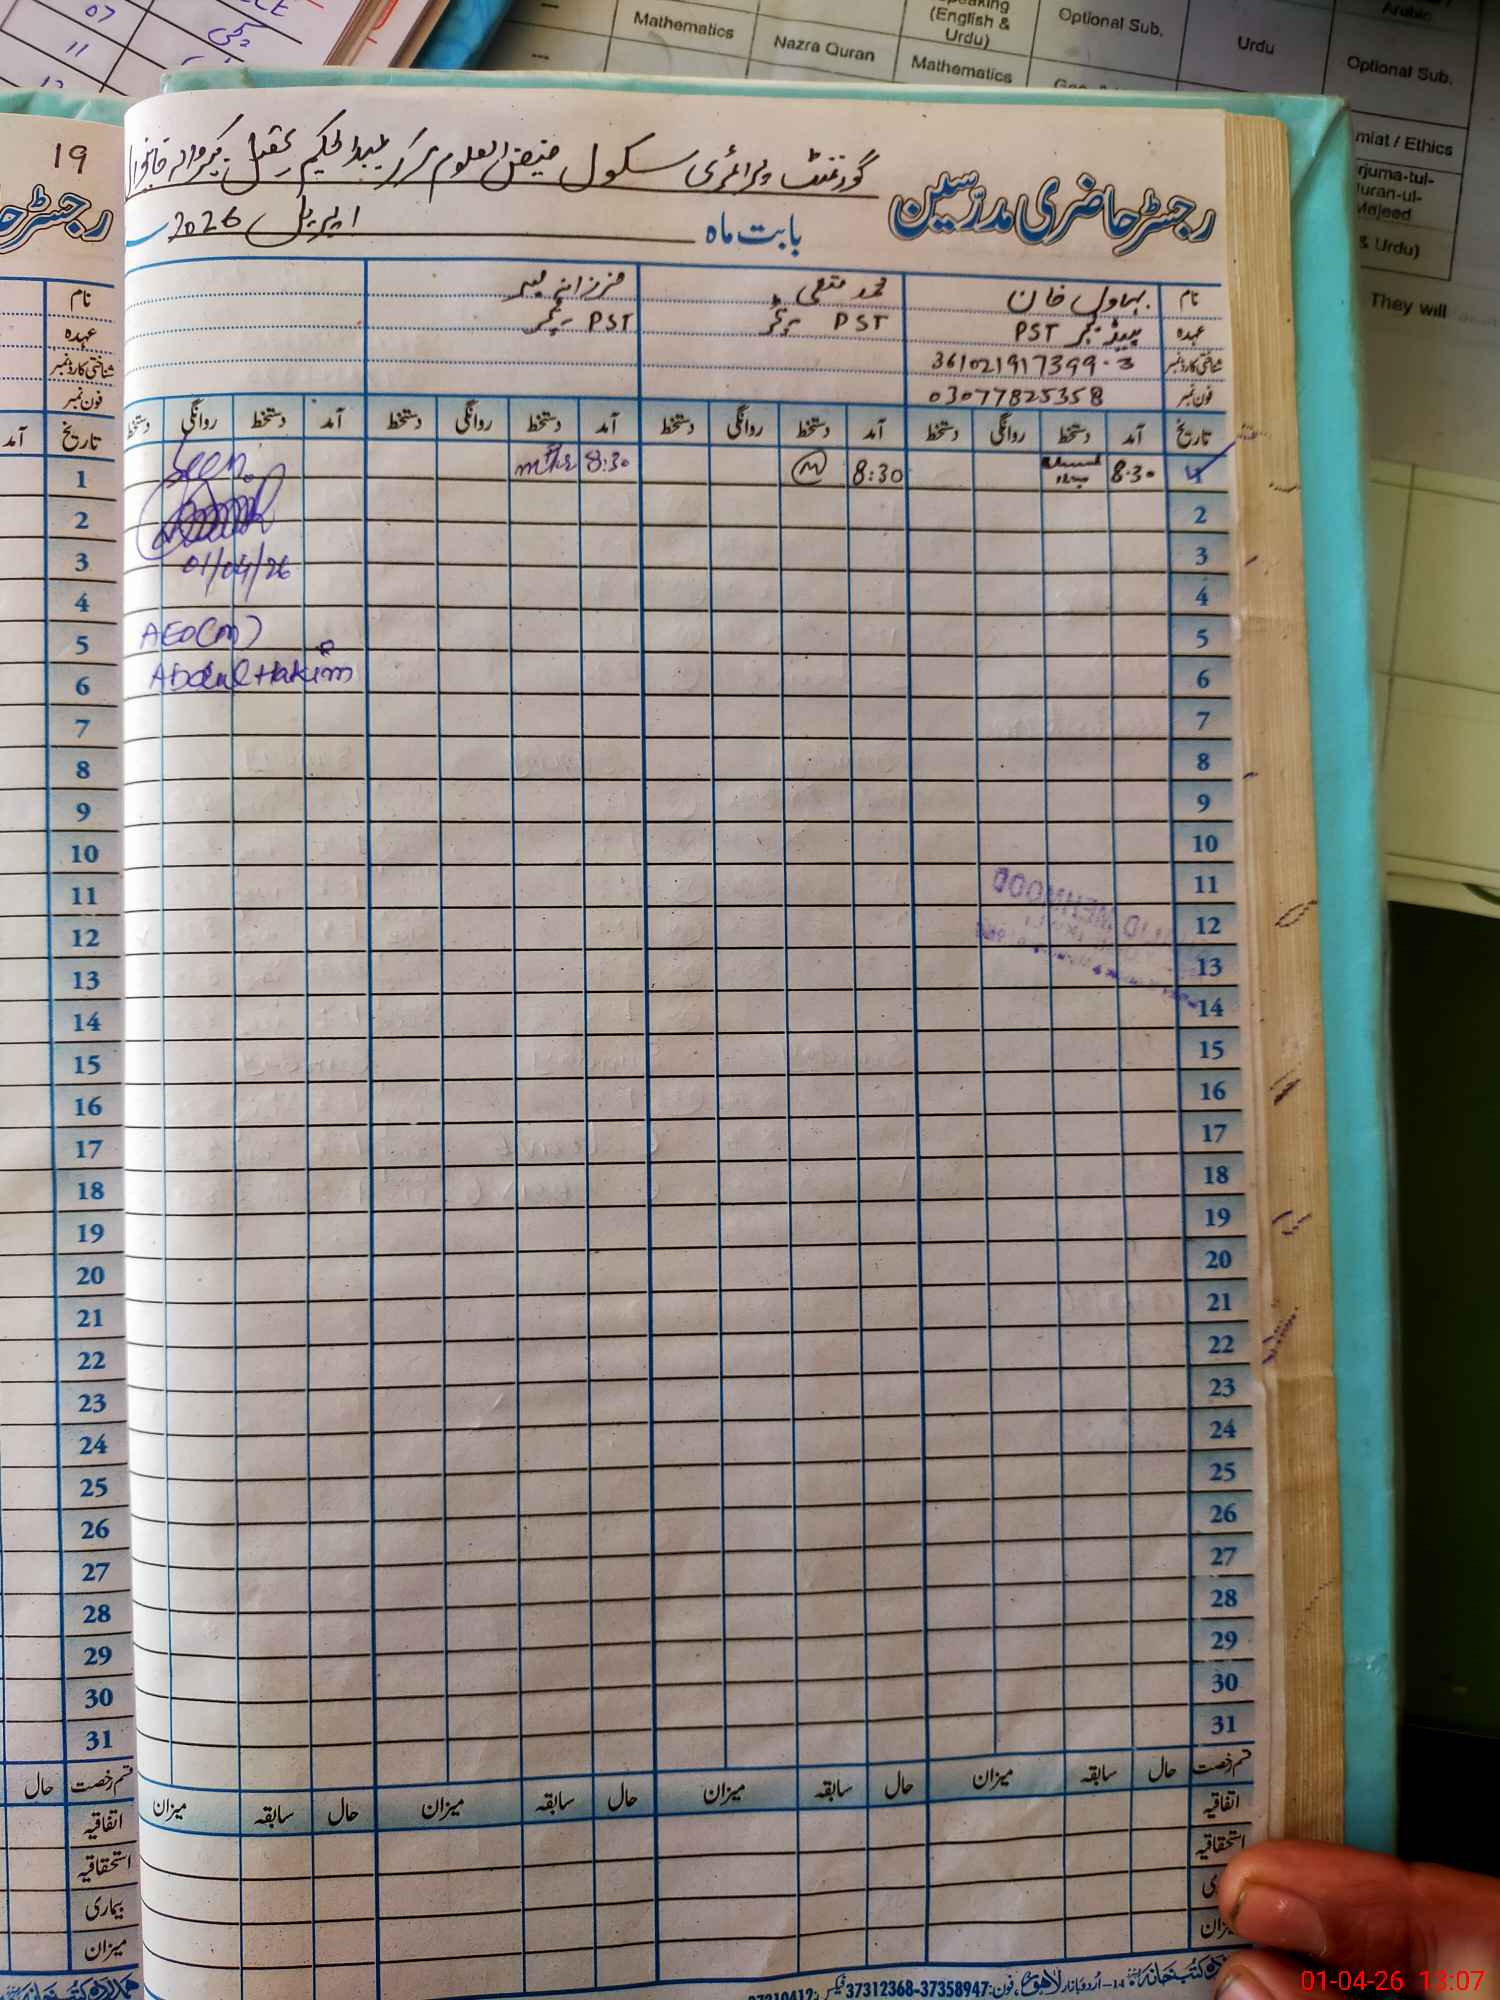 Mathematics
Nazra Quran
(English &
Urdu)
Mathematics
Optional Sub.
Urdu
Arabic
Optional Sub.
miat / Ethics
rjuma-tul-
uran-ul-
Majeed
& Urdu)
They will
07
11
19
رجسٹر حاضری مدرسین
گورنمنٹ پرائمری سکول فیض العلوم مرکز عبدالحکیم
بابت ماہ اپریل 2026
نام بہاول خان محمد متقی
عہدہ ہیڈ ٹیچر PST PST ٹیچر PST ٹیچر
شناختی کارڈ نمبر 361021917399-3
فون نمبر 03077825358
تاریخ آمد دستخط روانگی دستخط آمد دستخط روانگی دستخط آمد دستخط روانگی دستخط آمد دستخط روانگی دستخط
8:30 8:30 8:30
1
2
3
4
5
6
7
8
9
10
11
12
13
14
15
16
17
18
19
20
21
22
23
24
25
26
27
28
29
30
31
Seen
01/04/26
AEO(M)
Abdul Hakim
قسم رخصت حال سابقہ میزان حال سابقہ میزان حال سابقہ میزان حال سابقہ میزان
اتفاقیہ
استحقاقیہ
بیماری
میزان
اُردو بازار لاہور، فون: 37358947-37312368 فیکس:
01-04-26 13:07